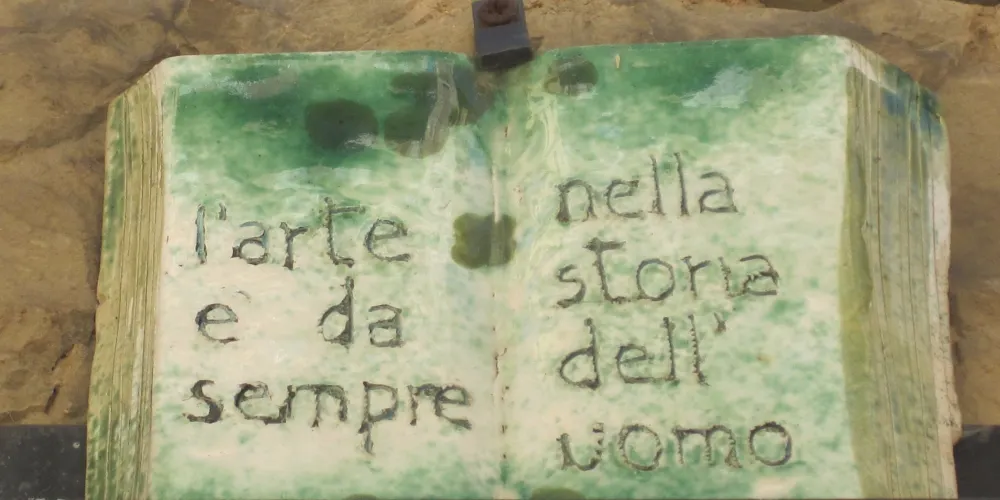 l'arte
è da
sempre
nella
storia
dell'
uomo